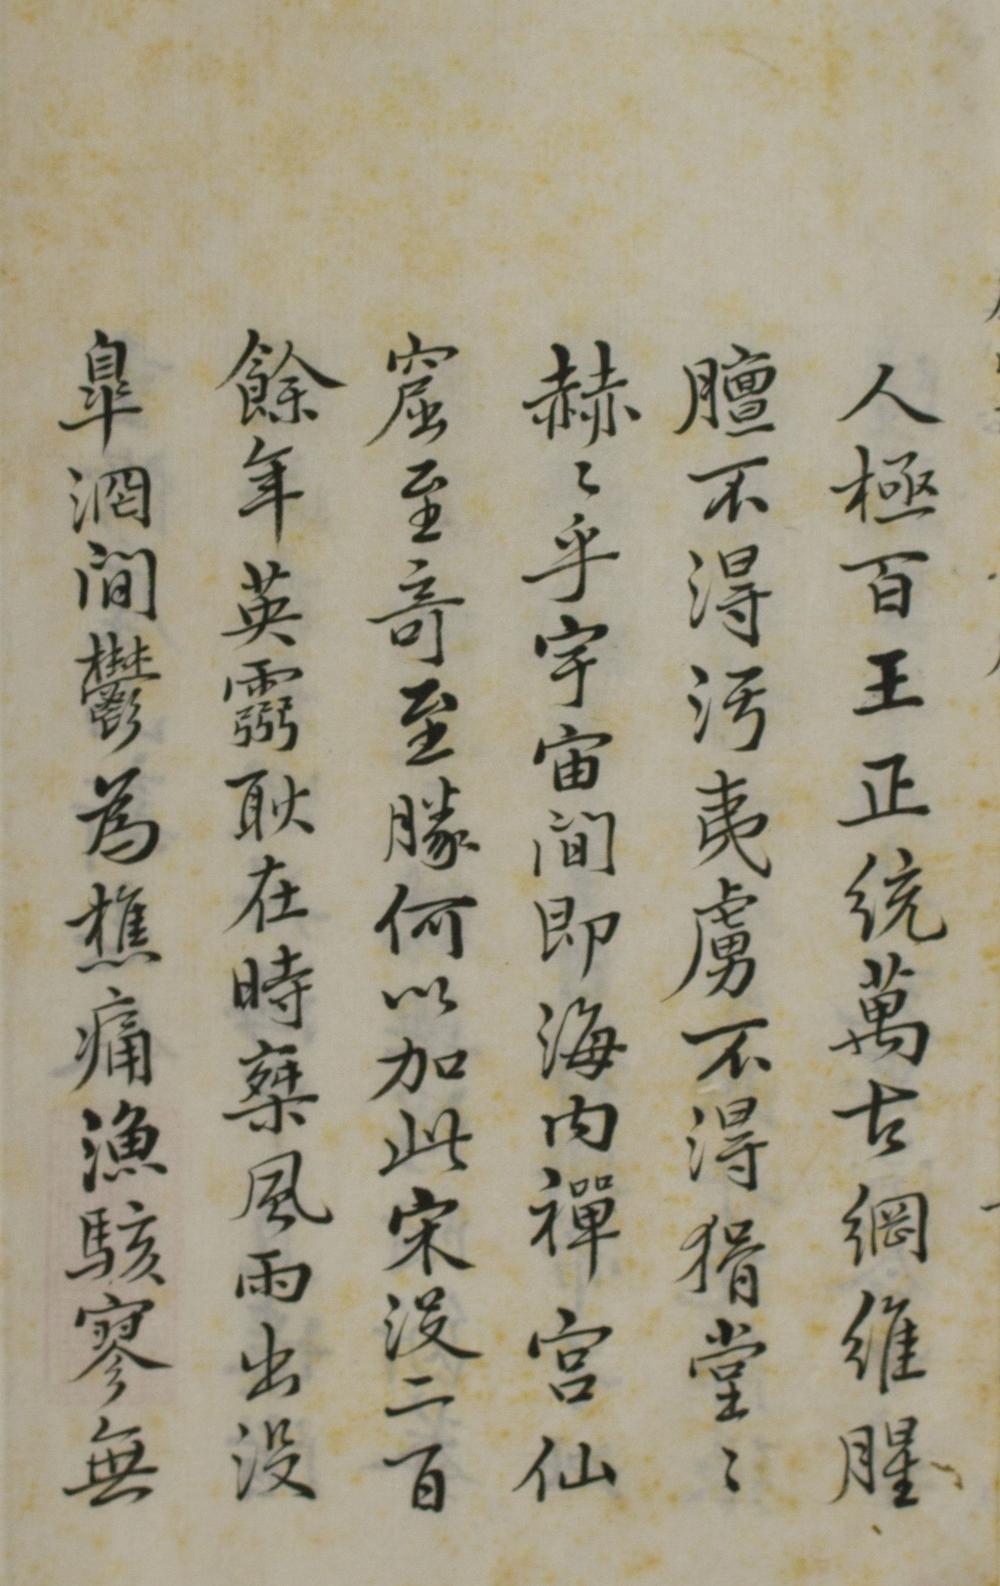 人極百王正統萬古綱維腥
膻不得污夷虜不得猾堂〻
赫〻乎宇宙間即海內禪宮仙
窟至竒至勝何以加此宋沒二百
餘年英靈耿在時椉風雨出沒
臯間鬱為樵痛漁駭寥無